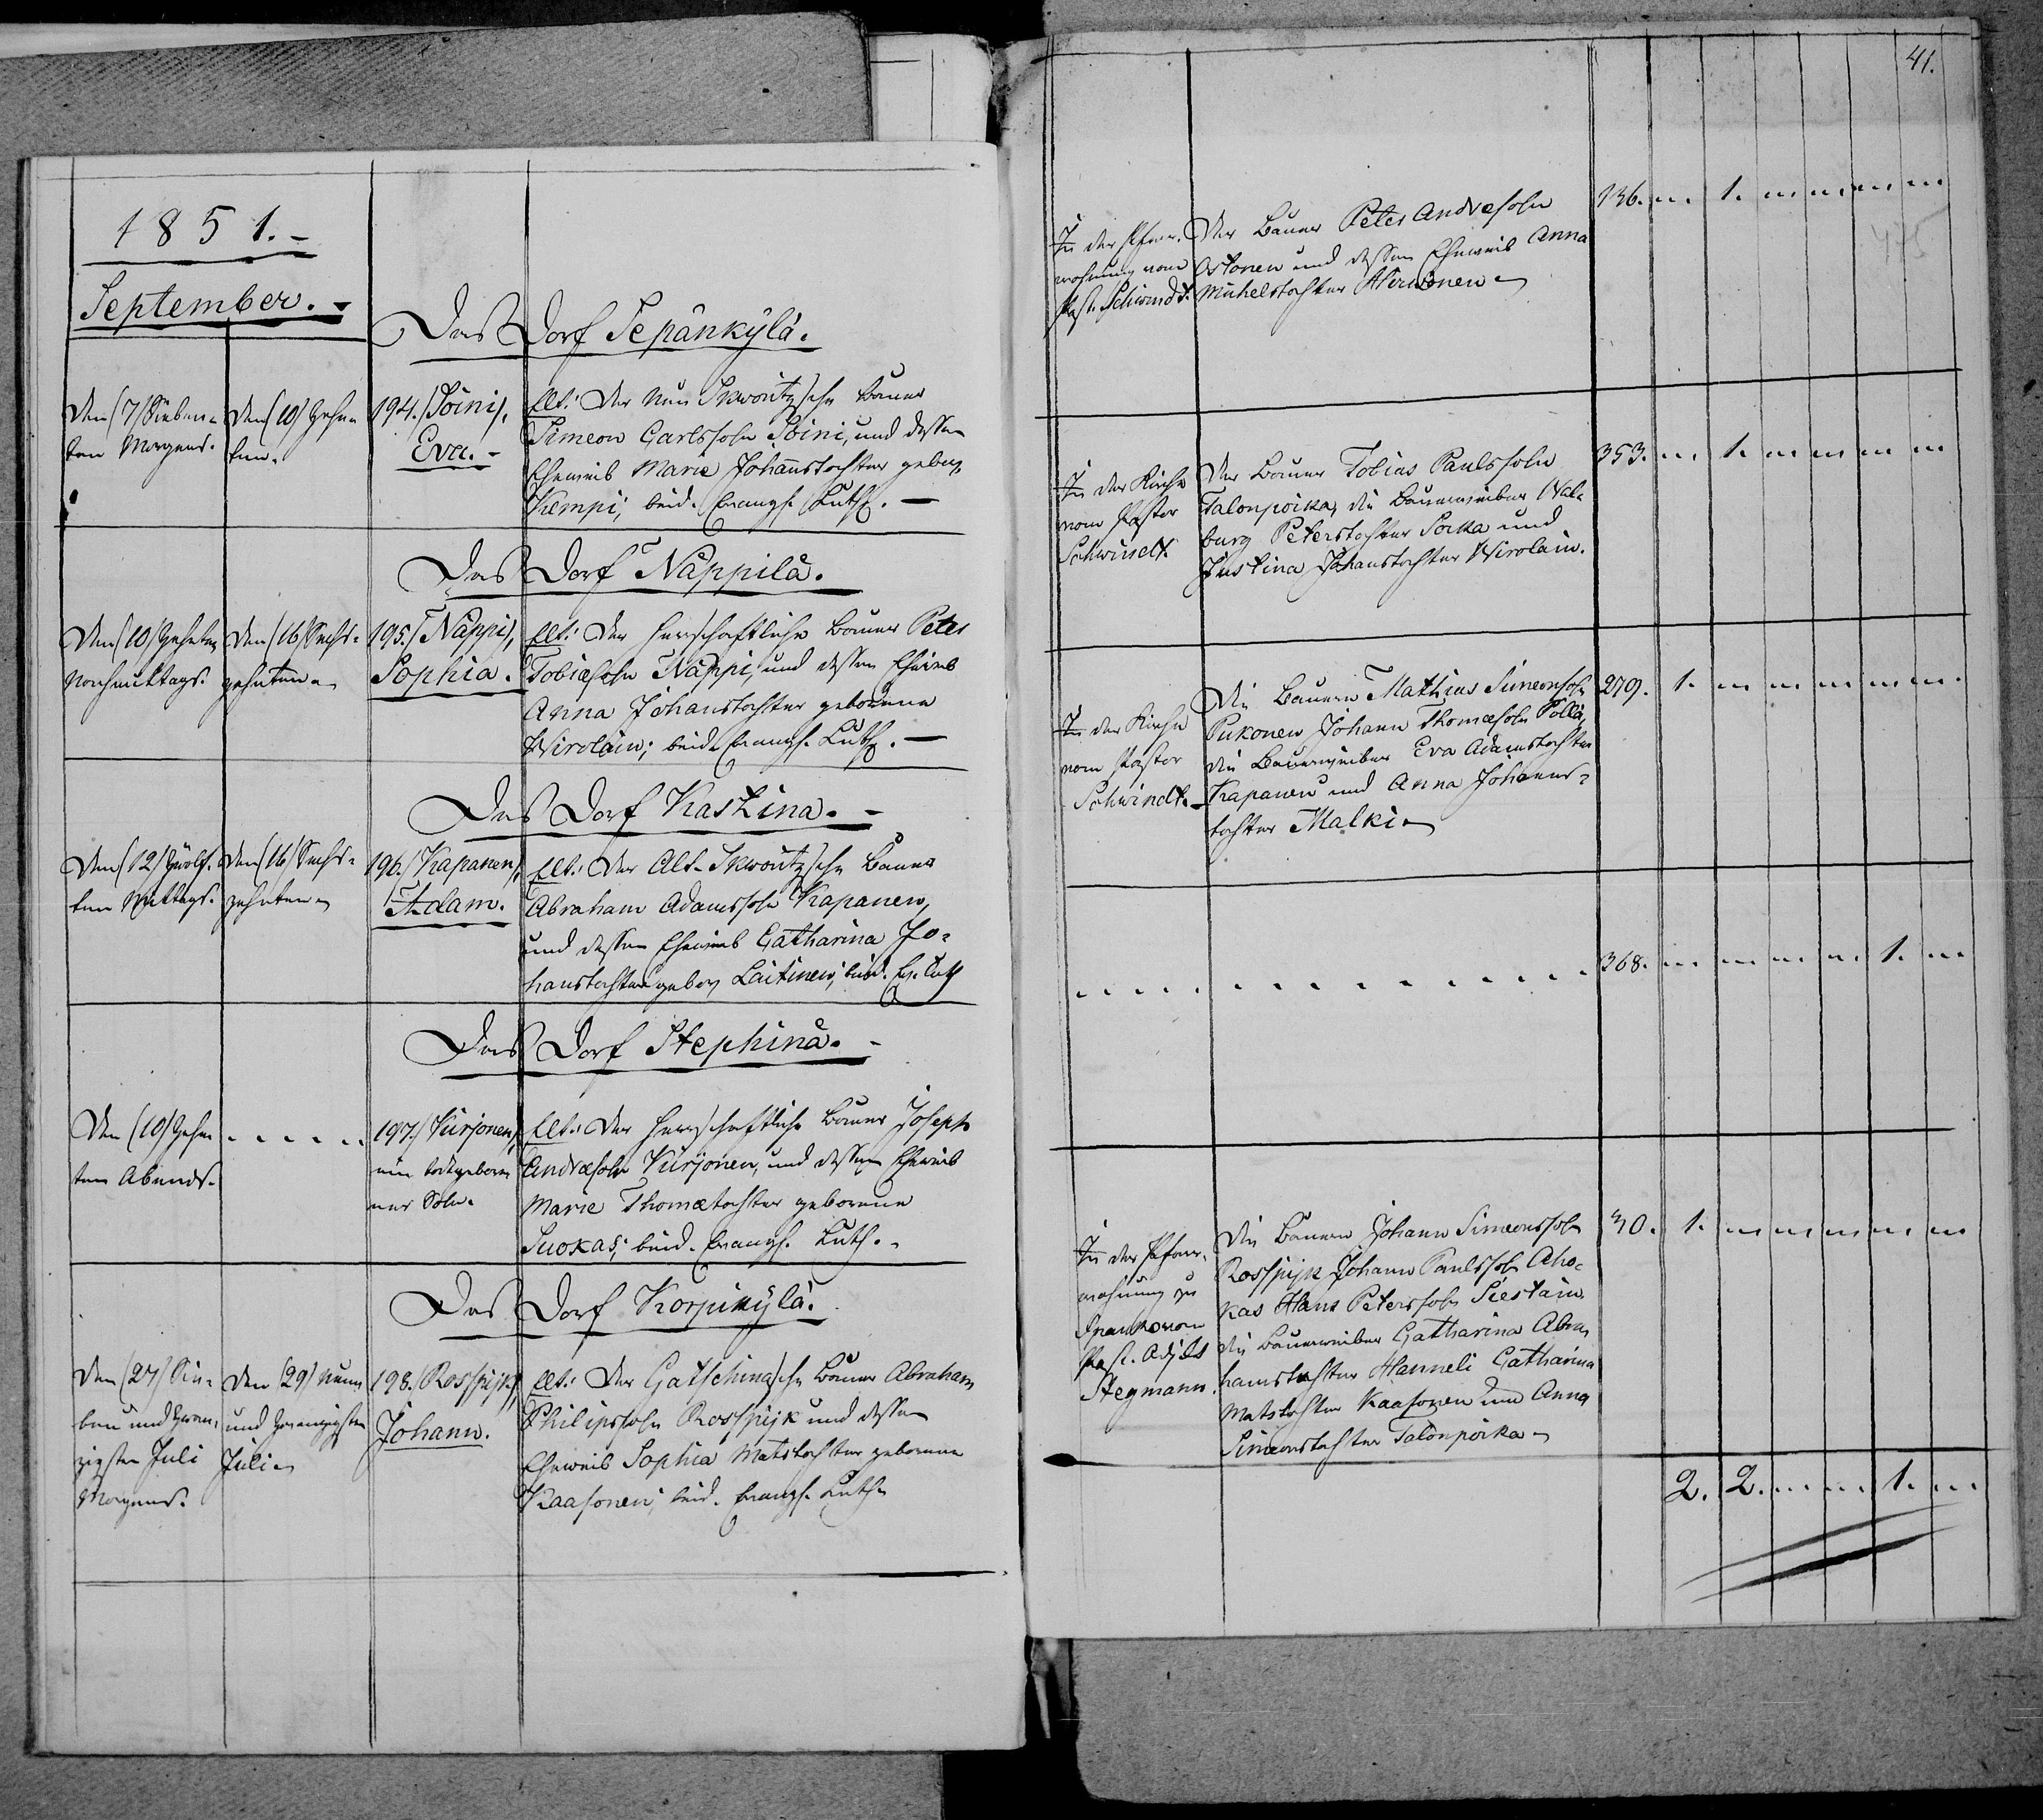 1851.-
September.-
Das Dorf Sepänkylä.
Den (7) Sieben-
ten Morgens.
Den (10) Zehn-
ten.
194. (Soini),
Eva.-
Elt: Der Neu Skworitzsche Bauer
Simeon Carlssohn Soini, und dessen
Eheweib Marie Johannstochter gebor.
Kempi; beid. Evangl. Luth. —
Das Dorf Näppilä.
Den (10) Zehnten
Nachmittags.
Den (16) Sechs-
zehnten.
195. (Näppi),
Sophia.
Elt: Der herrschaftliche Bauer Peter
Tobiæsohn Näppi, und dessen Eheweib
Anna Johanstochter geborene
Wirolain; beid. Evangl. Luth. —
Das Dorf Kaskina.-
Den (12) Zwölf-
ten Mittags.
Den (16) Sechs-
zehnten
196. (Kapanen),
Adam.
Elt: Der Alt-Skworitzsche Bauer
Abraham Adamssohn Kapanen,
und dessen Eheweib Catharina Jo-
hanstochter gebor. Laitinen; beid. Ev. Luth
Das Dorf Stephinä.-
Den (10) Zehn
ten Abends.
197. (Kürjonen)
ein todtgebore
ner Sohn.
Elt: Der herrschaftliche Bauer Joseph
Andræsohn Kürjonen, und dessen Eheweib
Marie Thomætochter geborene
Suokas; beid. Evangl. Luth.
Das Dorf Korpikylä.
Den (27) Sie-
ben und zwan-
zigsten Juli
Morgens.
Den (29) Neun
und zwanzigsten
Juli
198. (Rosspijk)
Johann.
Elt: Der Gatschinasche Bauer Abraham
Philipssohn Rosspijk und dessen
Eheweib Sophia Matstochter geborene
Kaasonen; beid. Evangl. Luth.
41.
In der Pfarr-
wohnung vom
Past. Schwindt.
Der Bauer Peter Andræsohn
Ostonen und dessen Eheweib Anna
Michelstochter Hirwonen
136. 1.
In der Kirche
vom Pastor
Schwindt.
Der Bauer Tobias Paulssohn
Talonpoika, die Bauerweiber Wal-
burg Peterstochter Sorka und
Justina Johanstochter Wirolain.
353. 1.
In der Kirche
vom Pastor
Schwindt.
Die Bauern Mathias Simeonsohn
Pukonen Johann Thomæsohn Pöllä,
die Bauerweiber Eva Adamstochter
Kapanen und Anna Johanns-
tochter Malki
279. 1.
368. 1.
In der Pfarr-
wohnung zu
vom
Past. Adj.
Stegmann.
Die Bauern Johann Simeonssohn
Rosspijk Johann Paulssohn Aho-
kas Hans Peterssohn Siestain
die Bauerweiber Catharina Abra-
hamstochter Hanneli Catharina
Matstochter Kaasonen und Anna
Simeonstochter Talonpoika
30. 1.
2. 2. 1.